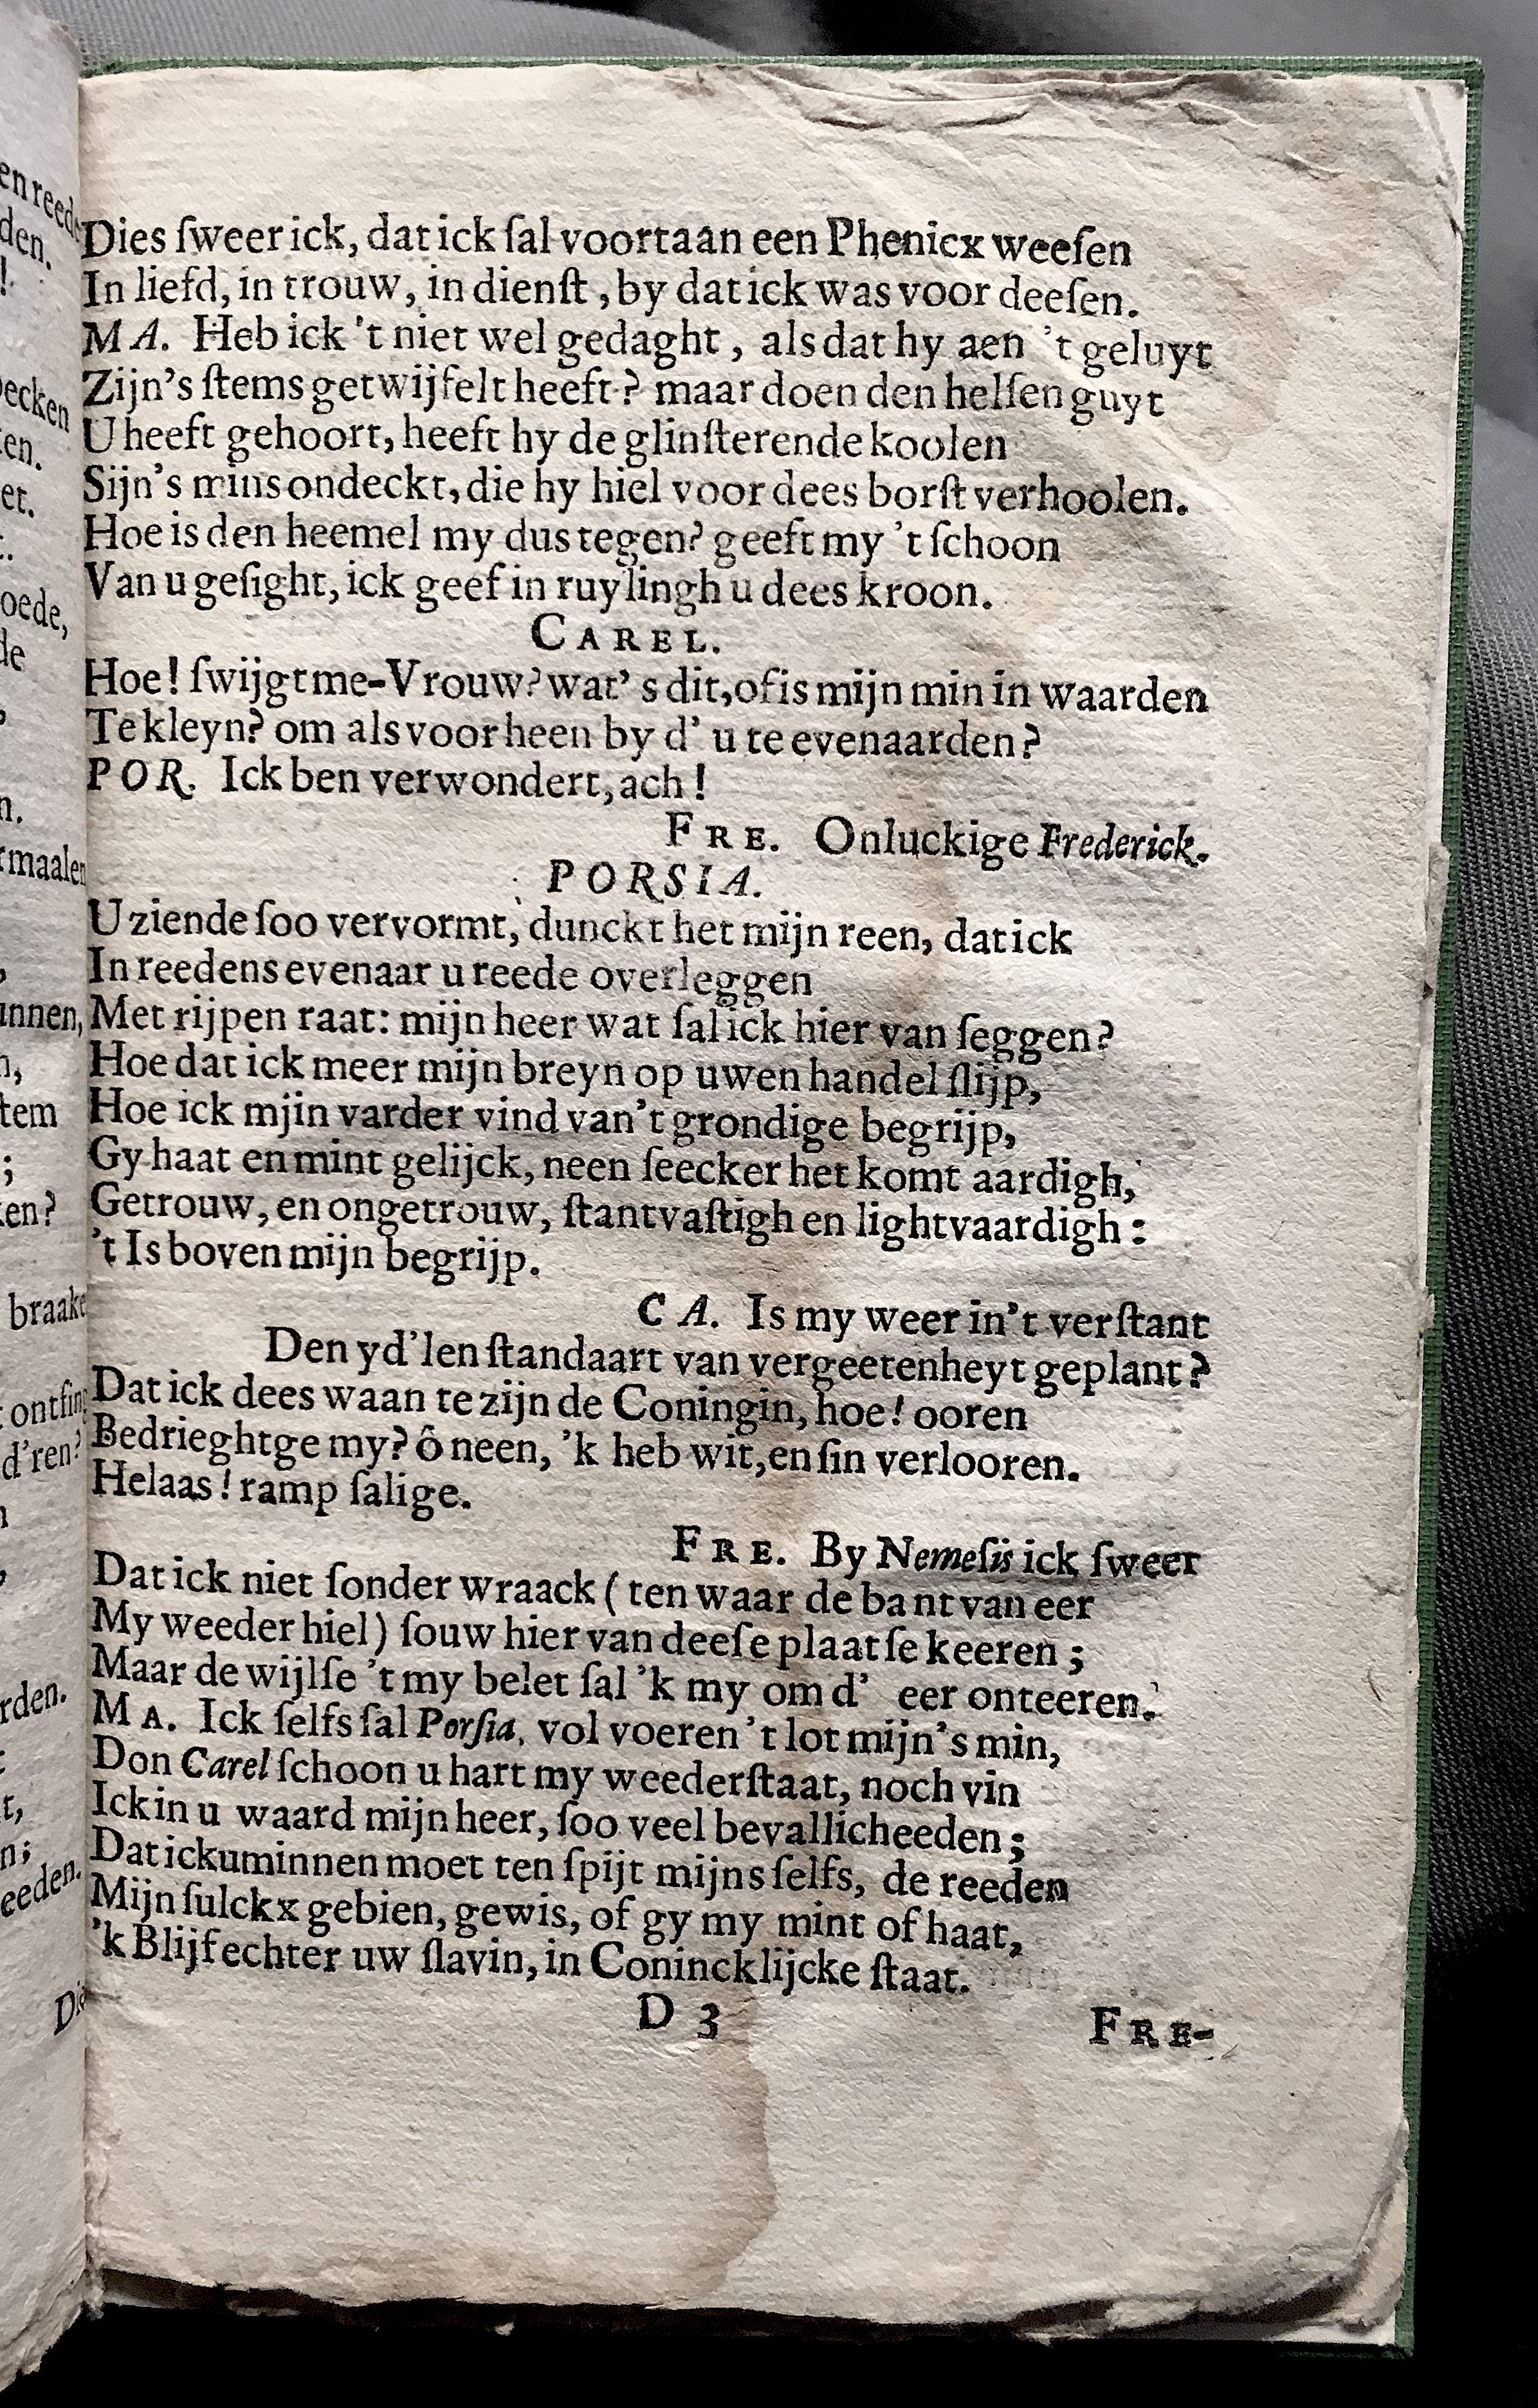 Dies ſweer ick, dat ick ſal voortaan een Phenicx weeſen
In liefd, in trouw, in dienſt, by dat ick was voor deeſen.
MA. Heb ick 't niet wel gedaght, als dat hy aen 't geluyt
Zijn's ſtems getwijfelt heeft? maar doen den helſen guyt
U heeft gehoort, heeft hy de glinſterende koolen
Sijn's mins ondeckt, die hy hiel voor dees borſt verhoolen.
Hoe is den heemel my dus tegen? geeft my 't ſchoon
Van u geſight, ick geef in ruylingh u dees kroon.
CAREL.
Hoe! ſwijgt me-Vrouw? wat' s dit, of is mijn min in waarden
Te kleyn? om als voor heen by d' u te evenaarden?
POR. Ick ben verwondert, ach!
FRE. Onluckige Frederick.
PORSIA.
U ziende ſoo vervormt, dunckt het mijn reen, dat ick
In reedens evenaar u reede overleggen
Met rijpen raat: mijn heer wat ſal ick hier van ſeggen?
Hoe dat ick meer mijn breyn op uwen handel ſlijp,
Hoe ick mjin varder vind van't grondige begrijp,
Gy haat en mint gelijck, neen ſeecker het komt aardigh,
Getrouw, en ongetrouw, ſtantvaſtigh en lightvaardigh:
't Is boven mijn begrijp.
CA. Is my weer in't verſtant
Den yd'len ſtandaart van vergeetenheyt geplant?
Dat ick dees waan te zijn de Coningin, hoe! ooren
Bedrieght ge my? ô neen, 'k heb wit, en ſin verlooren.
Helaas! ramp ſalige.
FRE. By Nemeſis ick ſweer
Dat ick niet ſonder wraack (ten waar de bant van eer
My weeder hiel) ſouw hier van deeſe plaatſe keeren;
Maar de wijlſe 't my belet ſal 'k my om d' eer onteeren.
MA. Ick ſelfs ſal Porſia, vol voeren 't lot mijn's min,
Don Carel ſchoon u hart my weederſtaat, noch vin
Ick in u waard mijn heer, ſoo veel bevallicheeden;
Dat ick u minnen moet ten ſpijt mijns ſelfs, de reeden
Mijn ſulckx gebien, gewis, of gy my mint of haat,
'k Blijf echter uw ſlavin, in Conincklijcke ſtaat.
D 3 FRE-